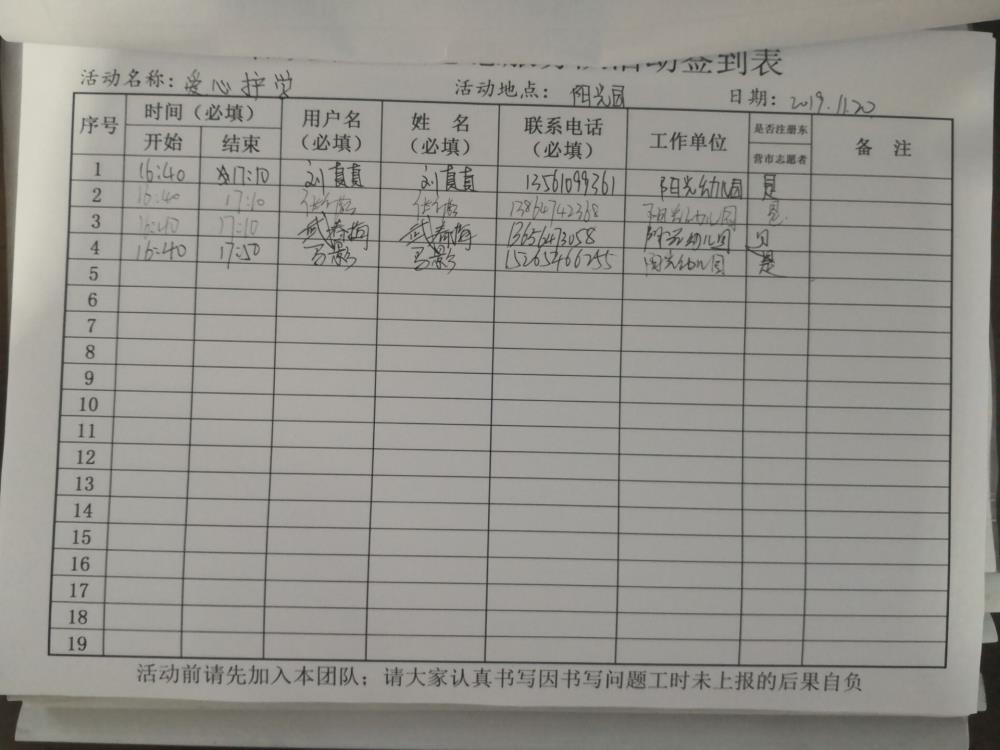 活动签到表
活动名称：爱心护学 活动地点：阳光园 日期：2019.11.22
序号 时间（必填） 开始 结束 用户名（必填） 姓 名（必填） 联系电话（必填） 工作单位 是否注册东营市志愿者 备 注
1 16:40 17:10 刘真真 刘真真 13561099361 阳光幼儿园 是
2 16:40 17:10 13864742368 阳光幼儿园 是
3 16:40 17:10 武春梅 武春梅 13656473058 阳光幼儿园
4 16:40 17:50 马影 马影 15265466255 阳光幼儿园 是
5
6
7
8
9
10
11
12
13
14
15
16
17
18
19
活动前请先加入本团队；请大家认真书写因书写问题工时未上报的后果自负